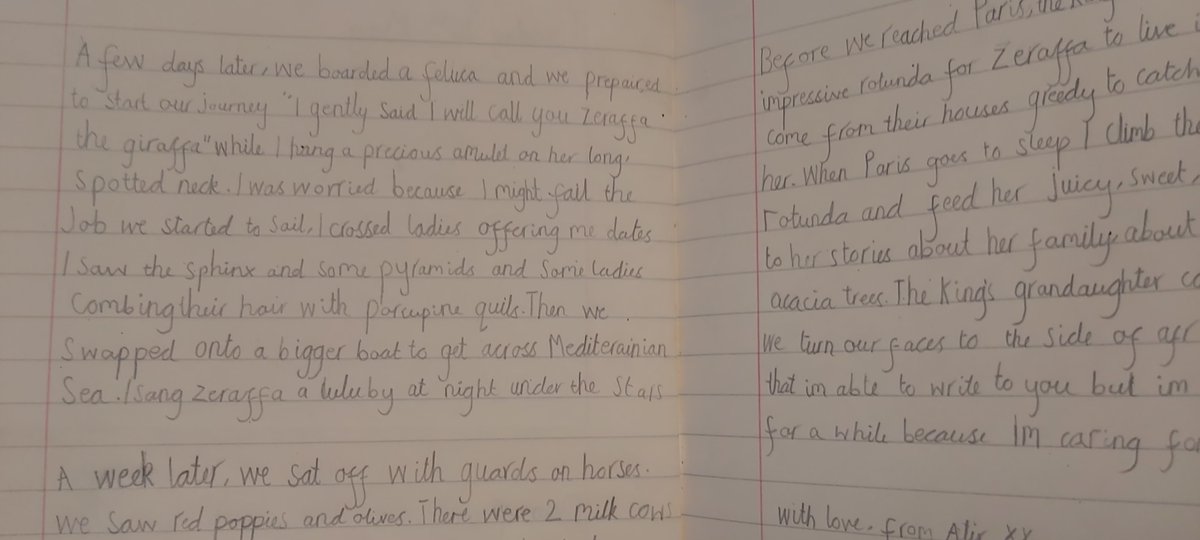 A few days later, we boarded a feluca and we prepaired
to start our journey "I gently said I will call you Zeraffa
the giraffa" while I hung a precious amulet on her long,
spotted neck. I was worried because I might fail the
Job we started to sail, I crossed ladies offering me dates
I saw the sphinx and some pyramids and some ladies
Combing their hair with porcupine quils. Then we
Swapped onto a bigger boat to get across Mediterainian
Sea. I sang Zeraffa a luluby at night under the stars
A week later, we sat off with guards on horses.
We saw red poppies and olives. There were 2 milk cows
Before we reached Paris, the
impressive rotunda for Zeraffa to live
come from their houses greedy to catch
her. When Paris goes to sleep I climb the
rotunda and feed her juicy, sweet,
to her stories about her family, about
acacia trees. The King's grandaughter
We turn our faces to the side of afr
that im able to write to you but im
for a while because Im caring
with love. from Atir xx